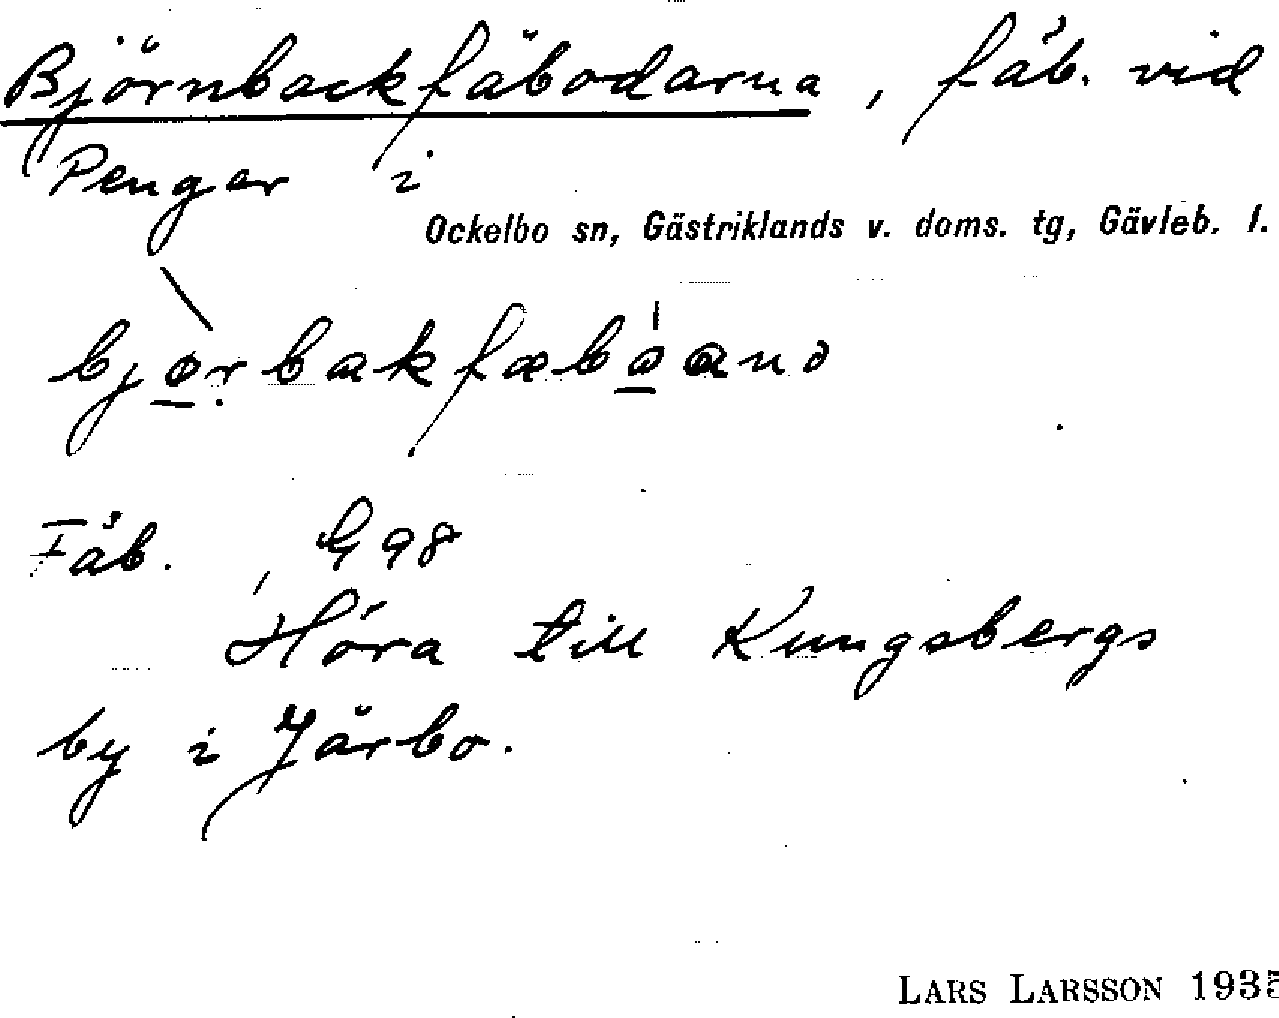 Björnbackfäbodarna, fäb. vid
Pengar i
Ockelbo sn, Gästriklands v. doms. tg, Gävleb. l.
Fäb., G 98
Höra till Kungsbergs
by i Järbo.
LARS LARSSON 1935